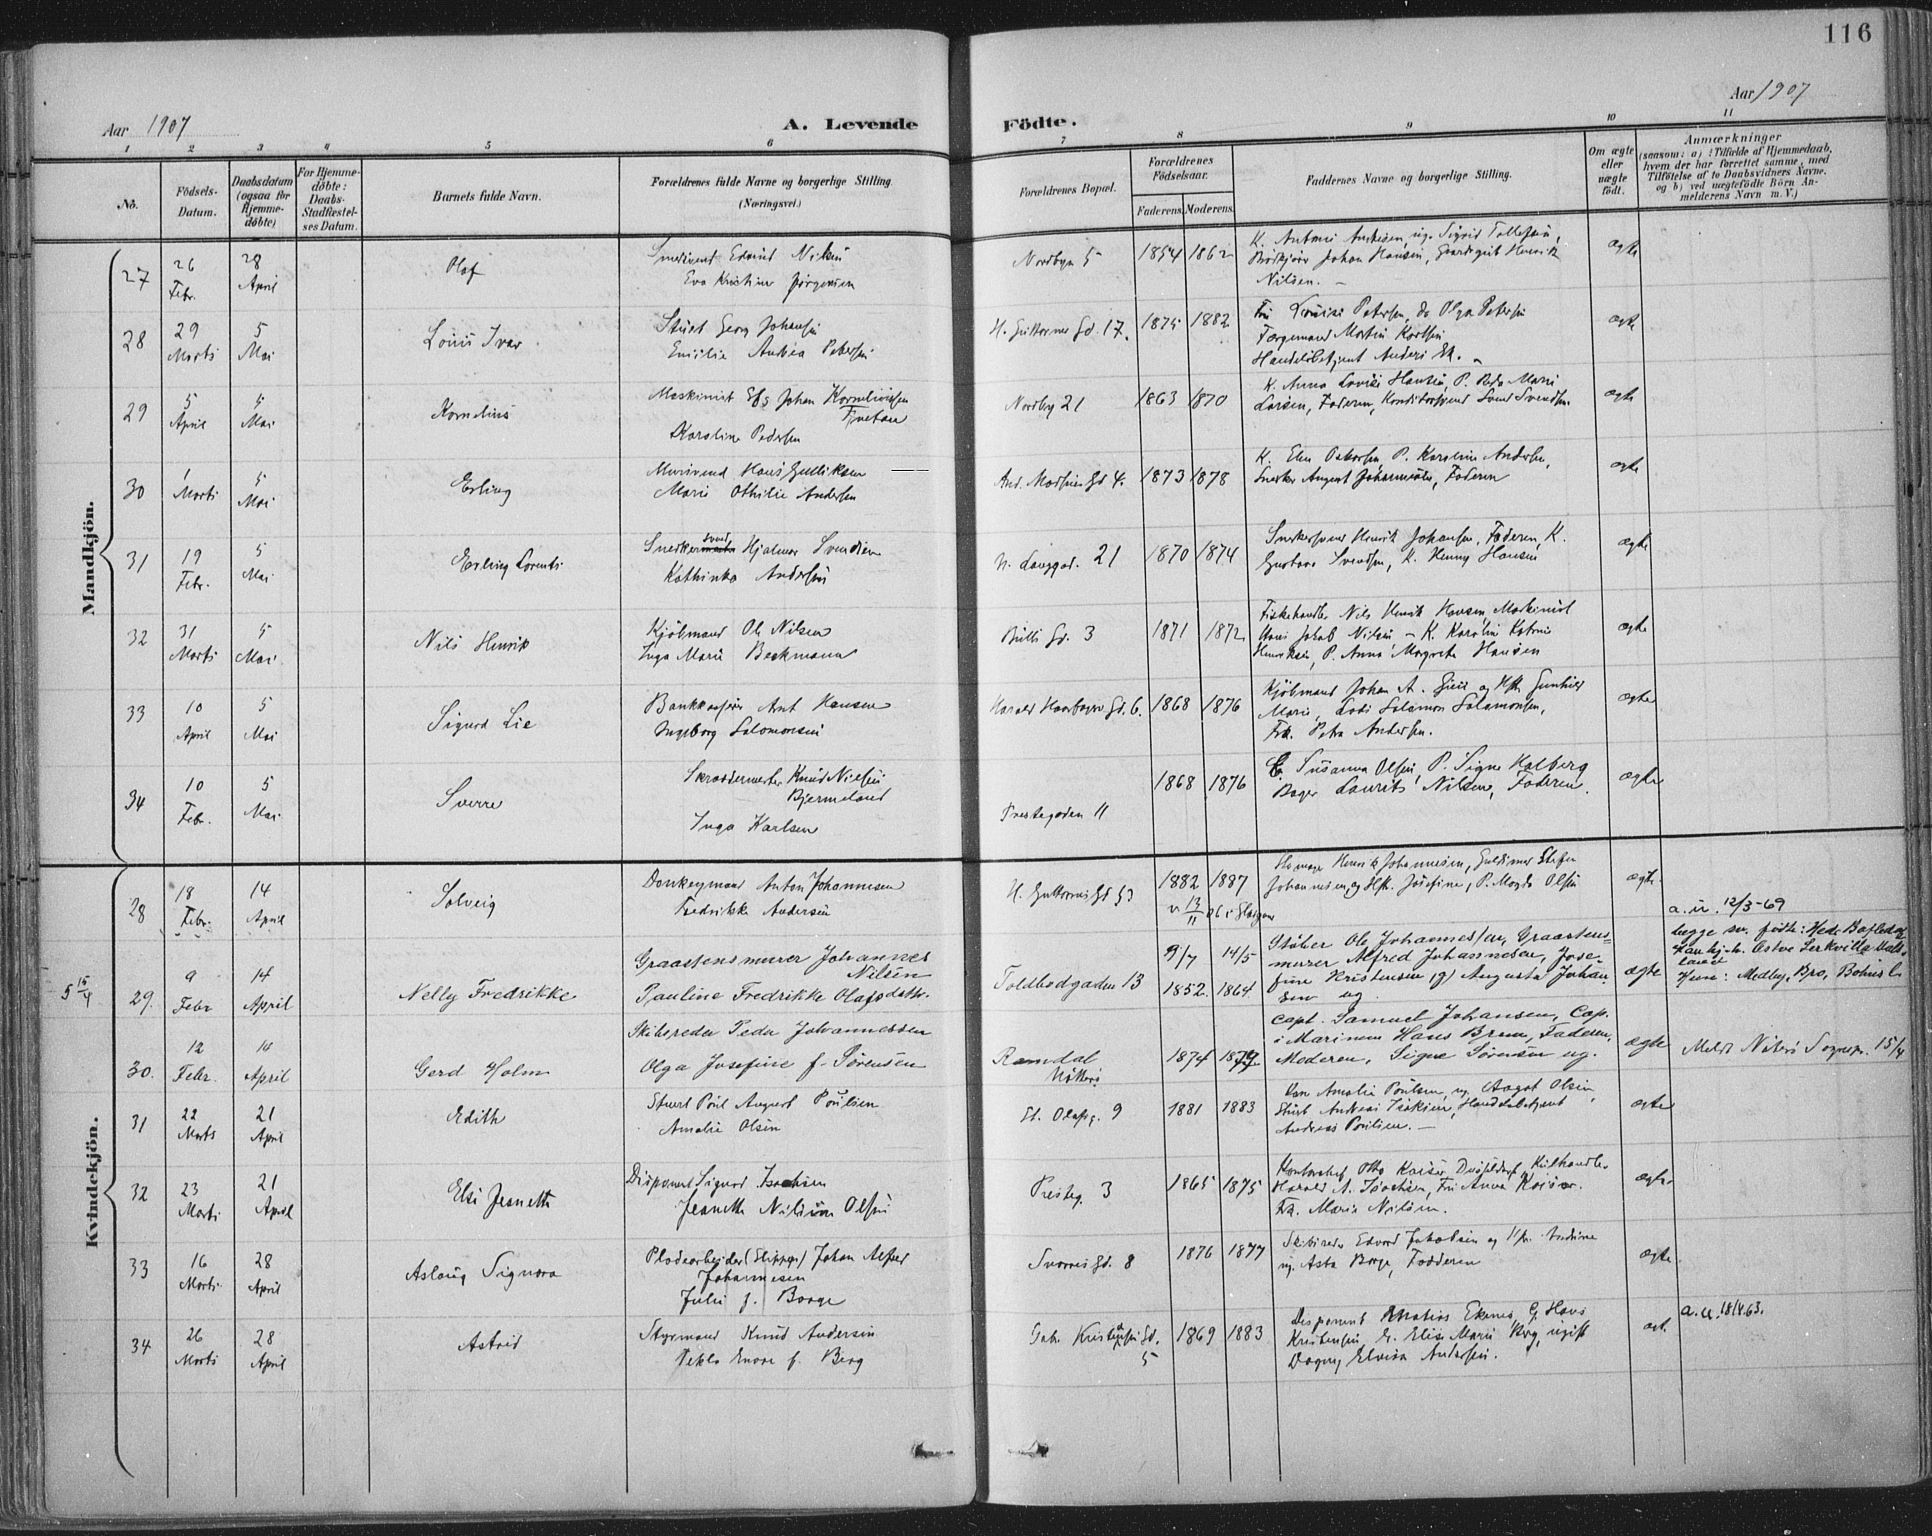 116
Aar 1907
A. Levende
Födte.
Aar 1907
1 2 3 4 5 6 7 8 9 10 11
No.
Födsels-
Datum.
Daabsdatum
(ogsaa for
Hjemme-
döbte)
For Hjemme-
döbte:
Daabs-
Stadfæstel-
ses Datum.
Barnets fulde Navn.
Forældrenes fulde Navne og borgerlige Stilling.
(Næringsvei.)
Forældrenes Bopæl.
Forældrenes
Födselsaar.
Faderens. Moderens.
Faddernes Navne og borgerlige Stilling.
Om ægte
eller
uægte
födt.
Anmærkninger
(saasom: a) i Tilfælde af Hjemmedaab,
hvem der har forrettet samme, med
Tilföielse af to Daabsvidners Navne.
og b) ved uægtefödte Börn An-
melderens Navn m. V.)
Mandkjön.
27
26
Febr.
28
April
Olof
Edvind Nilsen
Eva Kristine Jörgensen
Nordbyn 5
1854 1862
K. Antoni Andersen, ug. Sigrid Tollefsen,
Johan Hansen, Henrik
Nilsen. –
ægte
28
29
Marts
5
Mai
Louis Ivar
Stuert Georg Johansen
Emilie Andrea Petersen
H. Guttormes Gd. 17.
1875 1882
Fru Louise Petersen, do Olga Petersen
Færgemand Martin Karlsen
Handelsbetjent Anders Ek. –
ægte
29
5
April
5
Mai
Kornelius
Maskinist Johan Korneliussen
Tvetan
Karoline Pedersen
Nordby 21
1863 1870
K. Anna Lovise Hansen, P. Marie
Larsen, Faderen, Svend Svendsen
ægte
30
1
Marts
5
Mai
Erling
Mursvend Hans Gulliksen
Marie Othilie Andersen
And. Madsens Gd 4.
1873 1878
K. Elen Petersen P. Karoline Andersen,
Snerker August Johannesen, Faderen
ægte
31
19
Febr.
5
Mai
Erling Lorents
Snedkersvend Hjalmar Svendsen
Kathinka Andersen
N. Langgad. 21
1870 1874
Snekkersvend Henrik Johansen, Faderen, K.
Gustava Svendsen, K. Henny Hansen
ægte
32
31
Marts
5
Mai
Nils Henrik
Kjöbmand Ole Nilsen
Inga Marie Beckmann
Bulls Gd. 3
1871 1872
Fiskehandler Nils Henrik Hansen, Maskinist
Hans Jakob Nilsen – K. Karoline Katrine
Henriksen, P. Anna Margrete Hansen
ægte
33
10
April
5
Mai
Sigurd Lie
Bankkasserer Ant Hansen
Ingeborg Salomonsen
Harald Haarfagers Gd. 6.
1868 1876
Kjöbmand Johan A. og Hst. Gunhild
Marie, Salamon Salamonsen,
Frk. Petra Andersen.
ægte
34
10
Febr.
5
Mai
Sverre
Skræddermester Knud Nielsen
Bjermeland
Inga Karlsen
Prestegaden 11
1868 1876
E. Susanna Olsen, P. Signe Holberg
Bager Laurits Nilsen, Faderen.
ægte
Kvindekjön.
28
18
Febr.
14
April
Solveig
Donkeymand Anton Johannesen
Fredrikke Andersen
H. Guttormes Gd 53
1882 1887
v 13/11 06 i Glasgow
Henrik Johannesen, Stefen
Johannesen og Hst. Josefine, P. Magda Olsen
ægte
5 15/4
29.
9
Febr
14
April
Nelly Fredrikke
Graastensmurer Johannes
Nilsen
Pauline Fredrikke Olafsdattr.
Toldbodgaden 13
9/7 14/5
1852. 1864
Stöber Ole Johannessen, Graastens-
murer Alfred Johannesen, Jose-
fine Kristensen (g) Augusta Johan
sen ug.
ægte
a.u. 12/3-69
begge sv. födte: Hed.
Hun: Medby, Bro, Bohus l.
30.
12
Febr.
14
April
Gerd Holm
Skibsreder Peder Johannessen
Olga Josefine f. Sörensen
Ramdal
Nötterö
1874 1879
Capt. Samuel Johansen, Cap.
i Marinen Hans Bruun, Faderen,
Moderen, Signe Sörensen ug.
ægte
Meldt Nöterö Sognepr. 15/4
31
22
Marts
21
April
Edith
Stuert Poul August Poulsen
Amalie Olsen
St. Olafsg. 9
1881 1883
Amalie Poulsen, ug Aagot Olsen,
Stuert Andreas Handelsbetjent
Andreas Poulsen. –
ægte
32
23
Marts
21
April
Elsi Jeanette
Disponent Sigurd Isachsen
Jeanette Nilsine Olsen
Presteg. 3
1865 1875
Kontorchef Otto Kaiser Düsseldorf, Kulhandler
Harald A. Isachsen, Fru Anna Kaiser.
Frk. Maria Nilsen.
ægte
33
16
Marts
28
April
Aslaug Signora
Pladearbeider (Slippen) Johan Alfred
Johannesen
Julie f. Borge
Svarres Gd. 8
1876 1877
Skibsreder Edvard Jakobsen og Hu. Andrine
ug Asta Borge, Fadderen
ægte.
34
26
Marts
28
April
Astrid
Styrmand Knud Andersen
Thekla f. Berg
Gabr. Kristiansens Gd.
5
1869 1883
Disponent Mathias Ekenes, G. Hans
Kristensen, G. Elise Marie Berg, ugift
Dagny Elvira Andersen.
ægt.
a.u. 18/4 63.